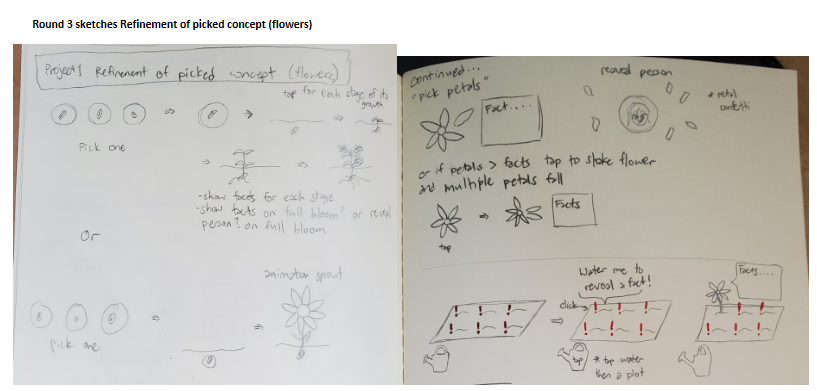 Round 3 sketches Refinement of picked concept (flowers)
Project 1 Refinement of picked concept (flowers)
tap for each stage of its
growth
Pick one
-show facts for each stage
-show facts on full bloom? or reveal
person? on full bloom
Or
animation sprout
Pick one
continued...
"pick petals"
Fact....
reveal person
* petal
confetti
or if petals > facts tap to shake flower
and multiple petals fall
Facts
tap
Water me to
reveal a fact!
click
tap
* tap water
then a plot
Facts....